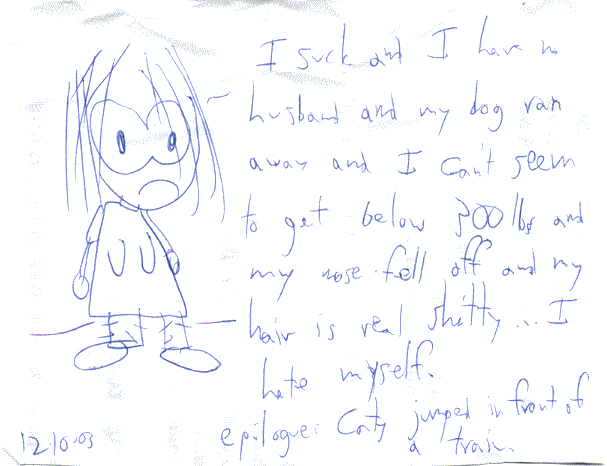 I suck and I have no
husband and my dog ran
away and I can't seem
to get below 300 lbs and
my nose fell off and my
hair is real shitty... I
hate myself.
epilogue: Caty jumped in front of
a train.
12.10.03